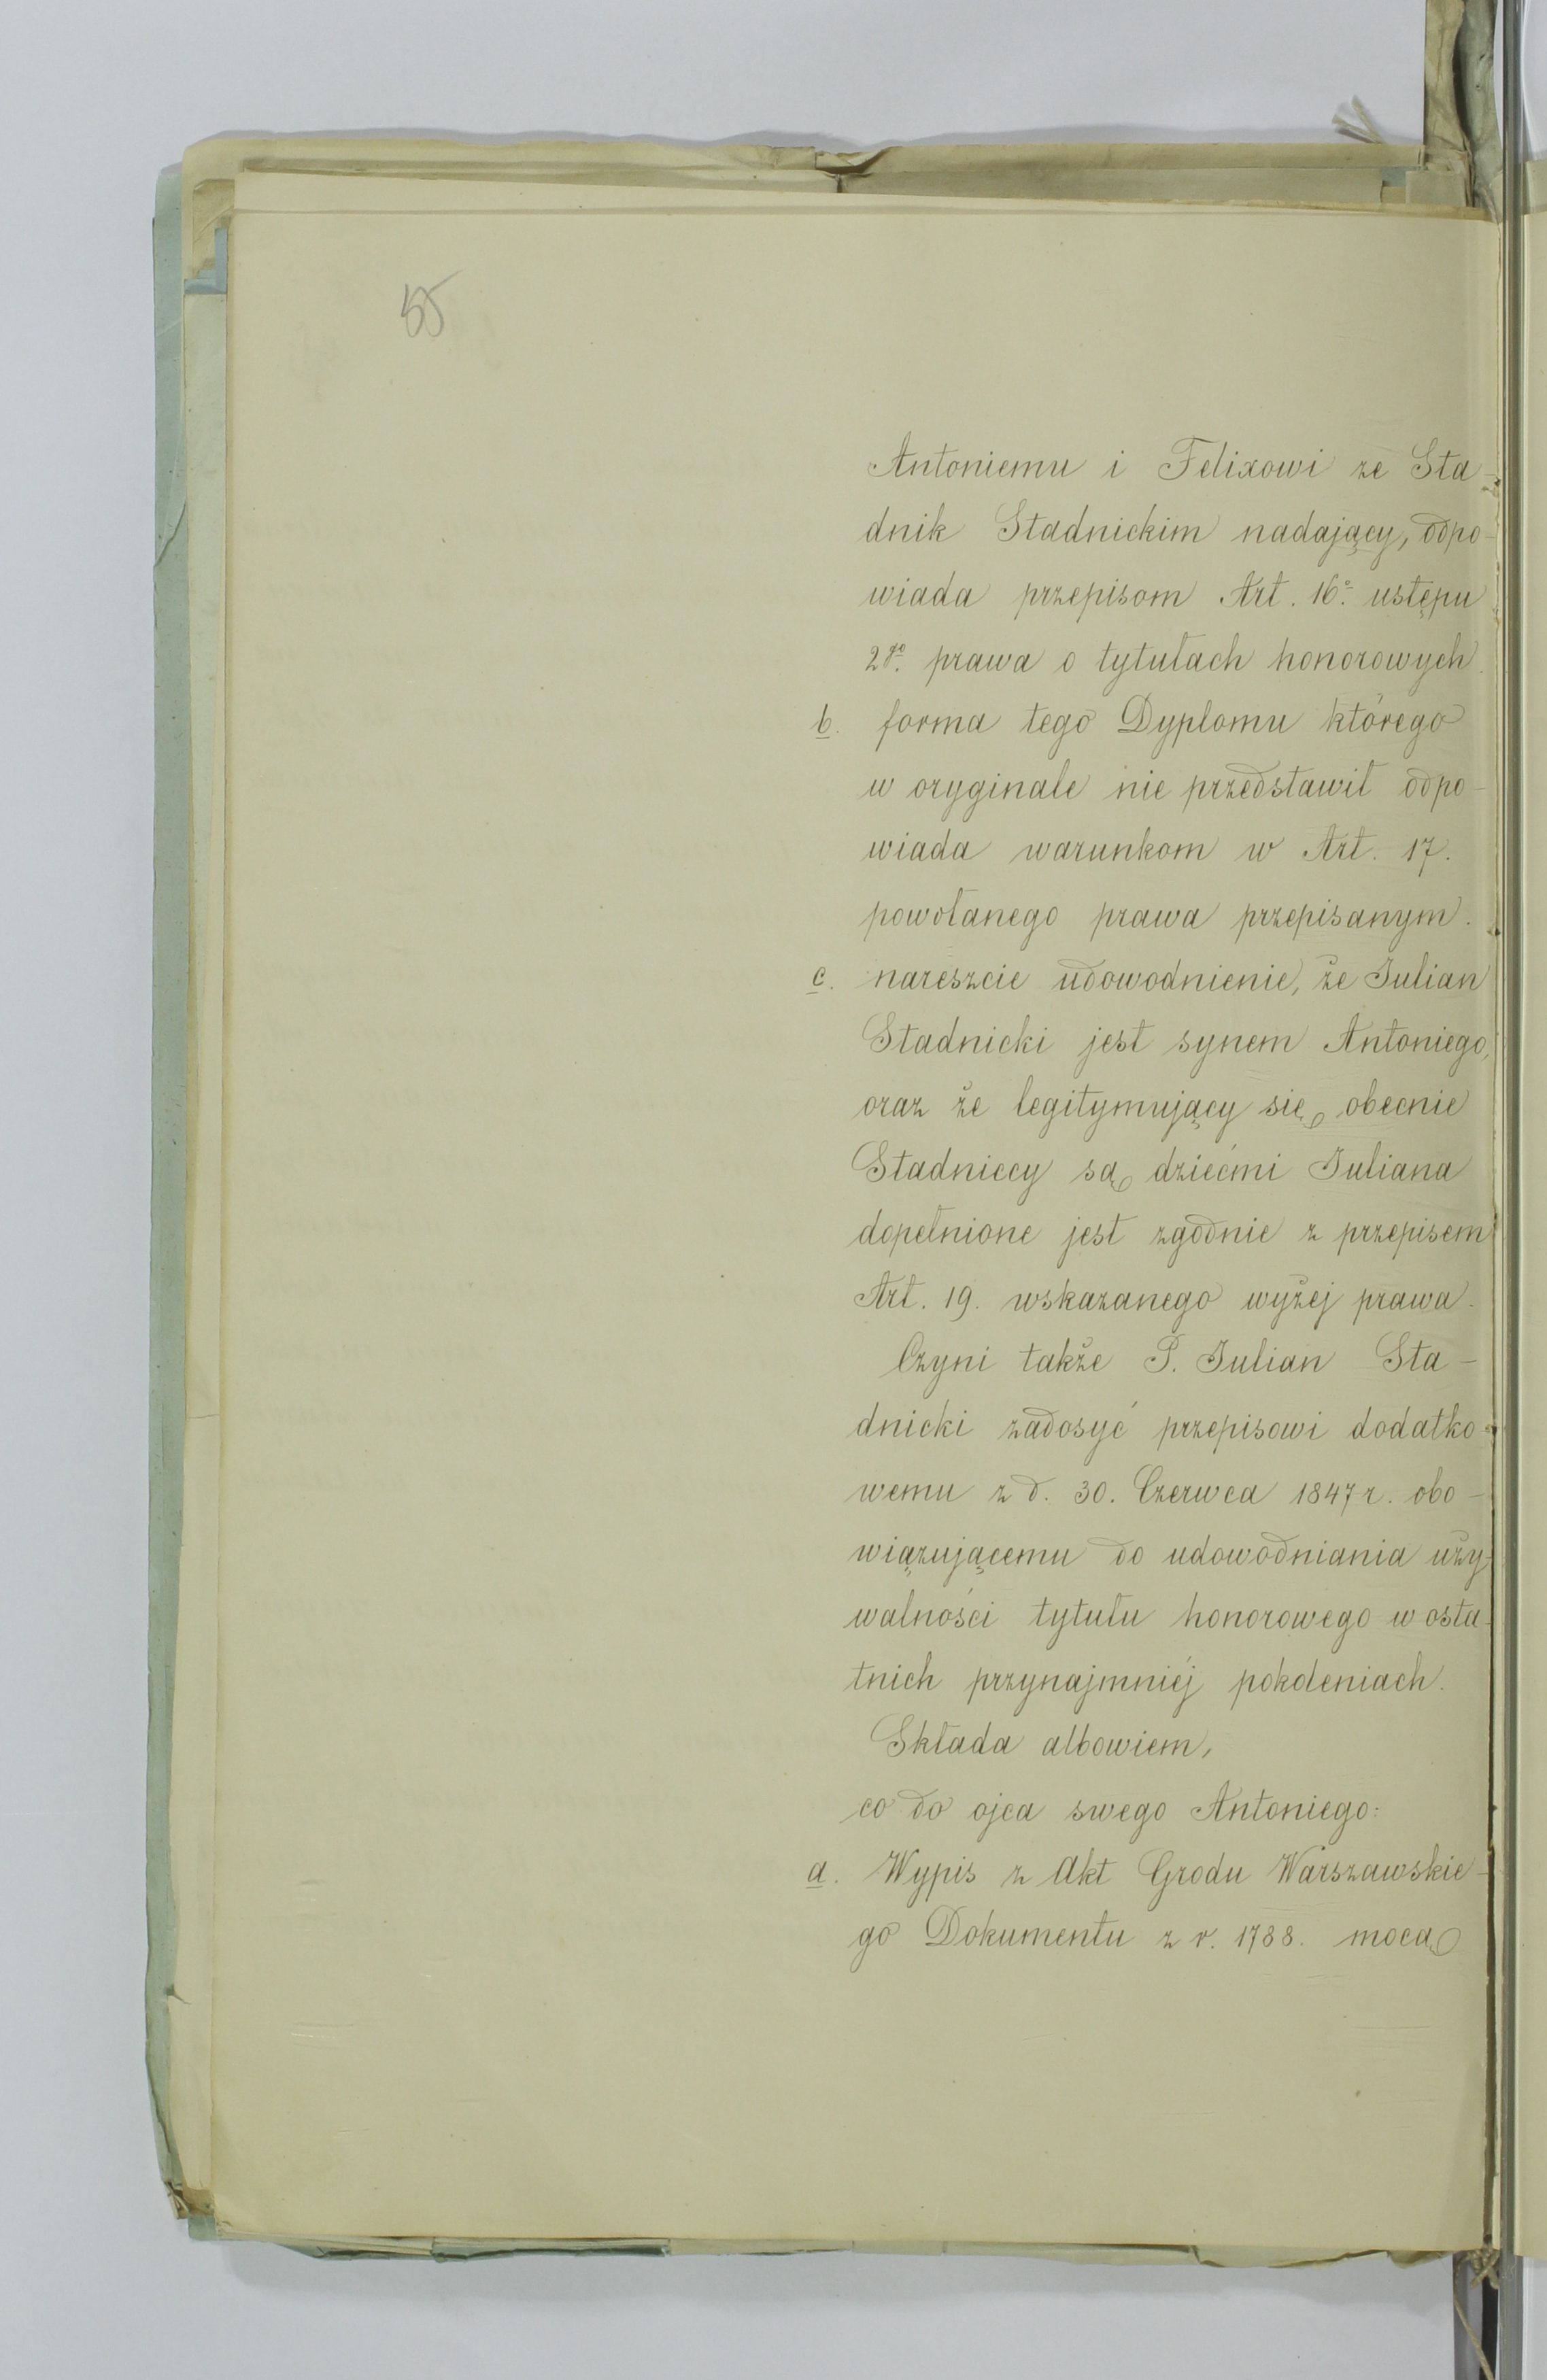 55
Antoniemu i Felixowi ze Sta-
dnik Stadnickim nadający, odpo-
wiada przepisom Art. 16º ustępu
2go prawa o tytułach honorowych.
b. forma tego Dyplomu którego
w oryginale nie przedstawił odpo-
wiada warunkom w Art. 17.
powołanego prawa przepisanym.
c. nareszcie udowodnienie, że Julian
Stadnicki jest synem Antoniego,
oraz że legitymujący się obecnie
Stadniccy są dziećmi Juliana
dopełnione jest zgodnie z przepisem
Art. 19. wskazanego wyżej prawa.
Czyni także P. Julian Sta-
dnicki zadosyć przepisowi dodatko-
wemu z d. 30. Czerwca 1847 r. obo-
wiązującemu do udowodniania uży-
walności tytułu honorowego w osta-
tnich przynajmniéj pokoleniach.
Składa albowiem,
co do ojca swego Antoniego:
a. Wypis z Akt Grodu Warszawskie-
go Dokumentu z r. 1788. mocą